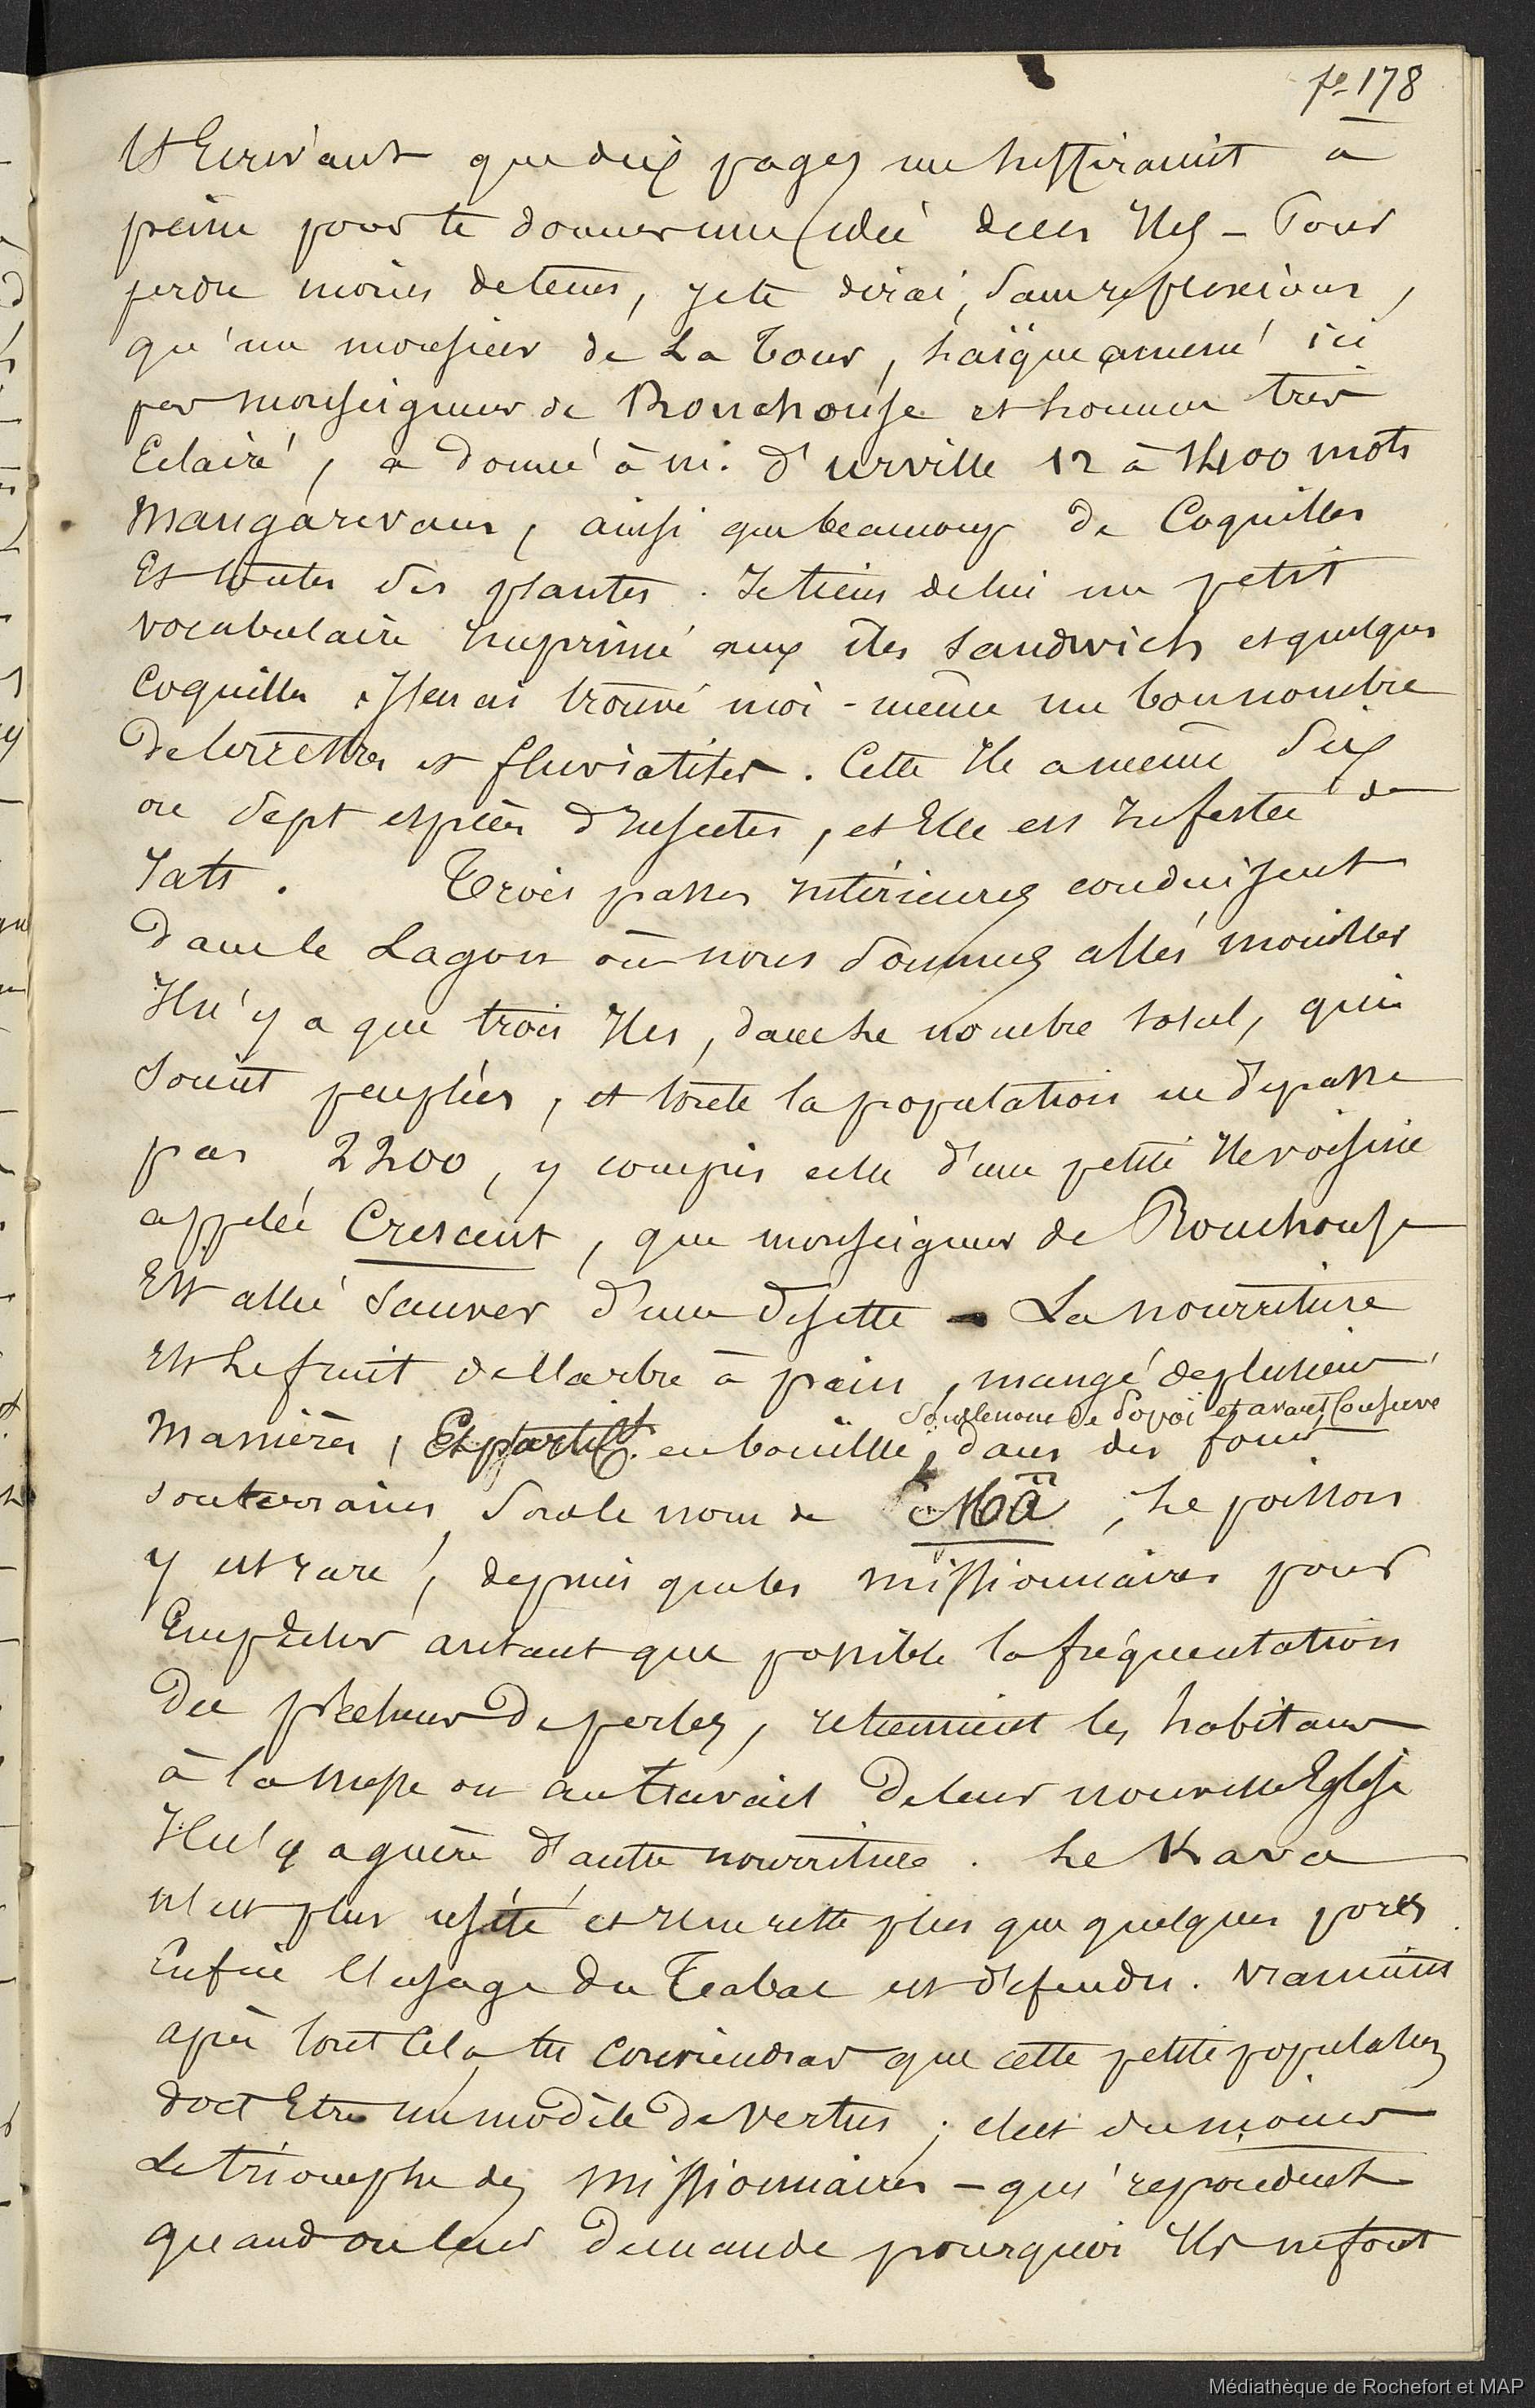 po 178
Et Ecrivant que dix pages ne suffiraient à
peine pour te donner une idée de ces Iles - Pour
perdre moins de tems, je te dirai, sans reflexions,
qu'un monsieur de La Tour, laïque amené ici
par monseigneur de Rouchouse et homme très
Eclairé, a donné à m. d'urville 12 à 1400 mots
Mangaréviens, ainsi que beaucoup de Coquilles
Et toutes ses plantes. Je tiens de lui un petit
vocabulaire Imprimé aux îles Sandwich et quelques
Coquilles. J'en ai trouvé moi-même un bon nombre
de terrestres et fluviatiles. Cette Ile a même Six
ou Sept espèces d'Insectes, et Elle est Infestée de
rats. Trois passes intérieures conduisent
dans le Lagon où nous Sommes allés mouiller
Il n'y a que trois Iles, dans le nombre total, qui
Soient peuplées, et toute la population ne dépasse
pas 2200, y compris celle d'une petite Ile voisine
appelée Crescent, que monseigneur de Rouchouse
Est allé Sauver d'une disette - La nourriture
Est le fruit de l'arbre à pain, mangé de plusieurs
Sous le nom de Popoï et avant Conservé
Manières, Et partic.t en bouillie, dans des fours
souterrains, Sous le nom de Mâ; le poisson
y est rare, depuis que les missionnaires pour
Empêcher autant que possible la fréquentation
des pêcheurs de perles, retiennent les habitans
à la messe ou au travail de leur nouvelle Eglise
Il n'y a guère d'autre nourriture. Le Kava
n'est plus usité et il ne reste plus que quelques porcs.
Enfin l'usage du Tabac est défendu. vraiment
après tout Cela tu conviendras que cette petite population
doit Etre un modèle de vertus; c'est du moins
Le triomphe des missionnaires - qui répondent
quand on leur demande pourquoi Ils ne font
Médiathèque de Rochefort et MAP